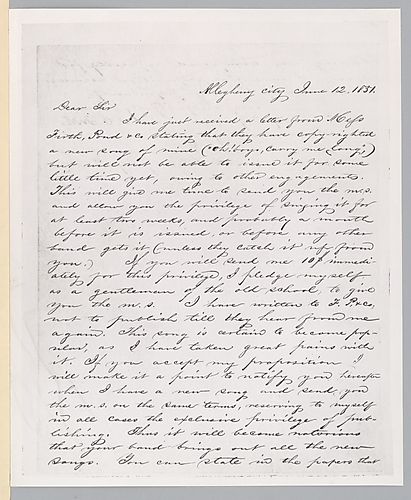 Allegheny city, June 12, 1851.
Dear Sir
I have just received a letter from Mess
Firth, Pond & Co stating that they have copy-righted
a new song of mine ("Oh! boys, carry me 'long",)
but will not be able to issue it for some
little time yet, owing to other engagements.
This will give me time to send you the m.s.
and allow you the privilege of singing it for
at least two weeks, and probably a month
before it is issued, or before any other
band gets it (unless they catch it up from
you.) If you will send me 10$ immedi-
ately for this privilege, I pledge myself,
as a gentleman of the old school, to give
you the m.s. I have written to F. P. & co,
not to publish till they hear from me
again. This song is certain to become pop-
ular, as I have taken great pains with
it. If you accept my proposition I
will make it a point to notify you hereafter
when I have a new song and send you
the m.s. on the same terms, reserving to myself
in all cases the exclusive privilege of pub-
lishing. Thus it will become notorious
that your band brings out all the new
songs. You can state in the papers that